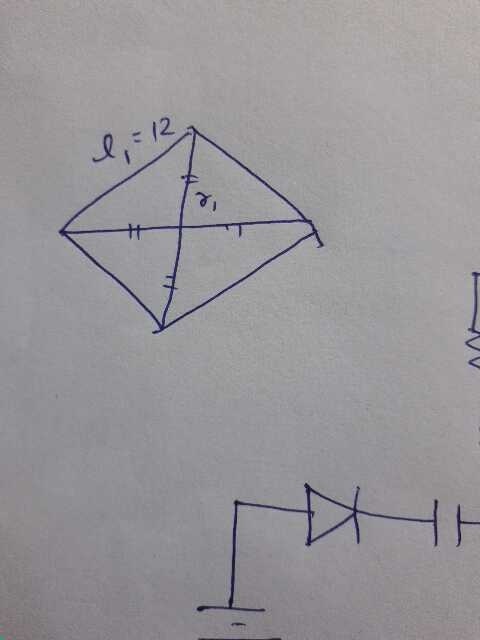 l₁ = 12
r₁